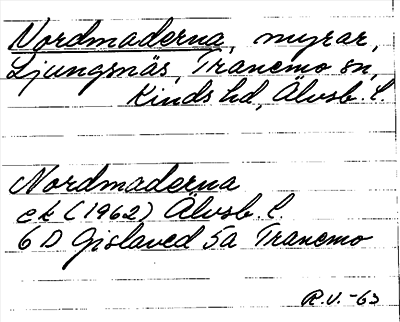 Nordmaderna, myrar,
Ljungsnäs, Tranemo sn,
Kinds hd, Älvsb. l.
Nordmaderna
ek (1962) Älvsb. l.
6 D Gislaved 5a Tranemo
R.V.-63